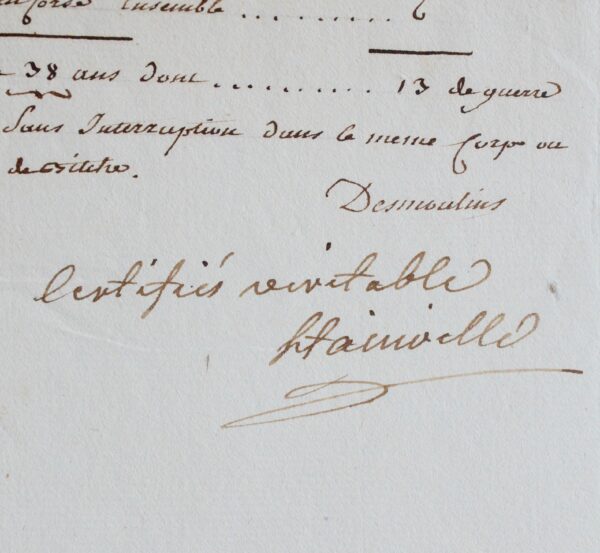 Corse Ensemble .......... 6
38 ans dont .......... 13 de guerre
Sans Interruption dans le meme Corps ou
de
Desmoulins
Certifiés véritable
Stainville